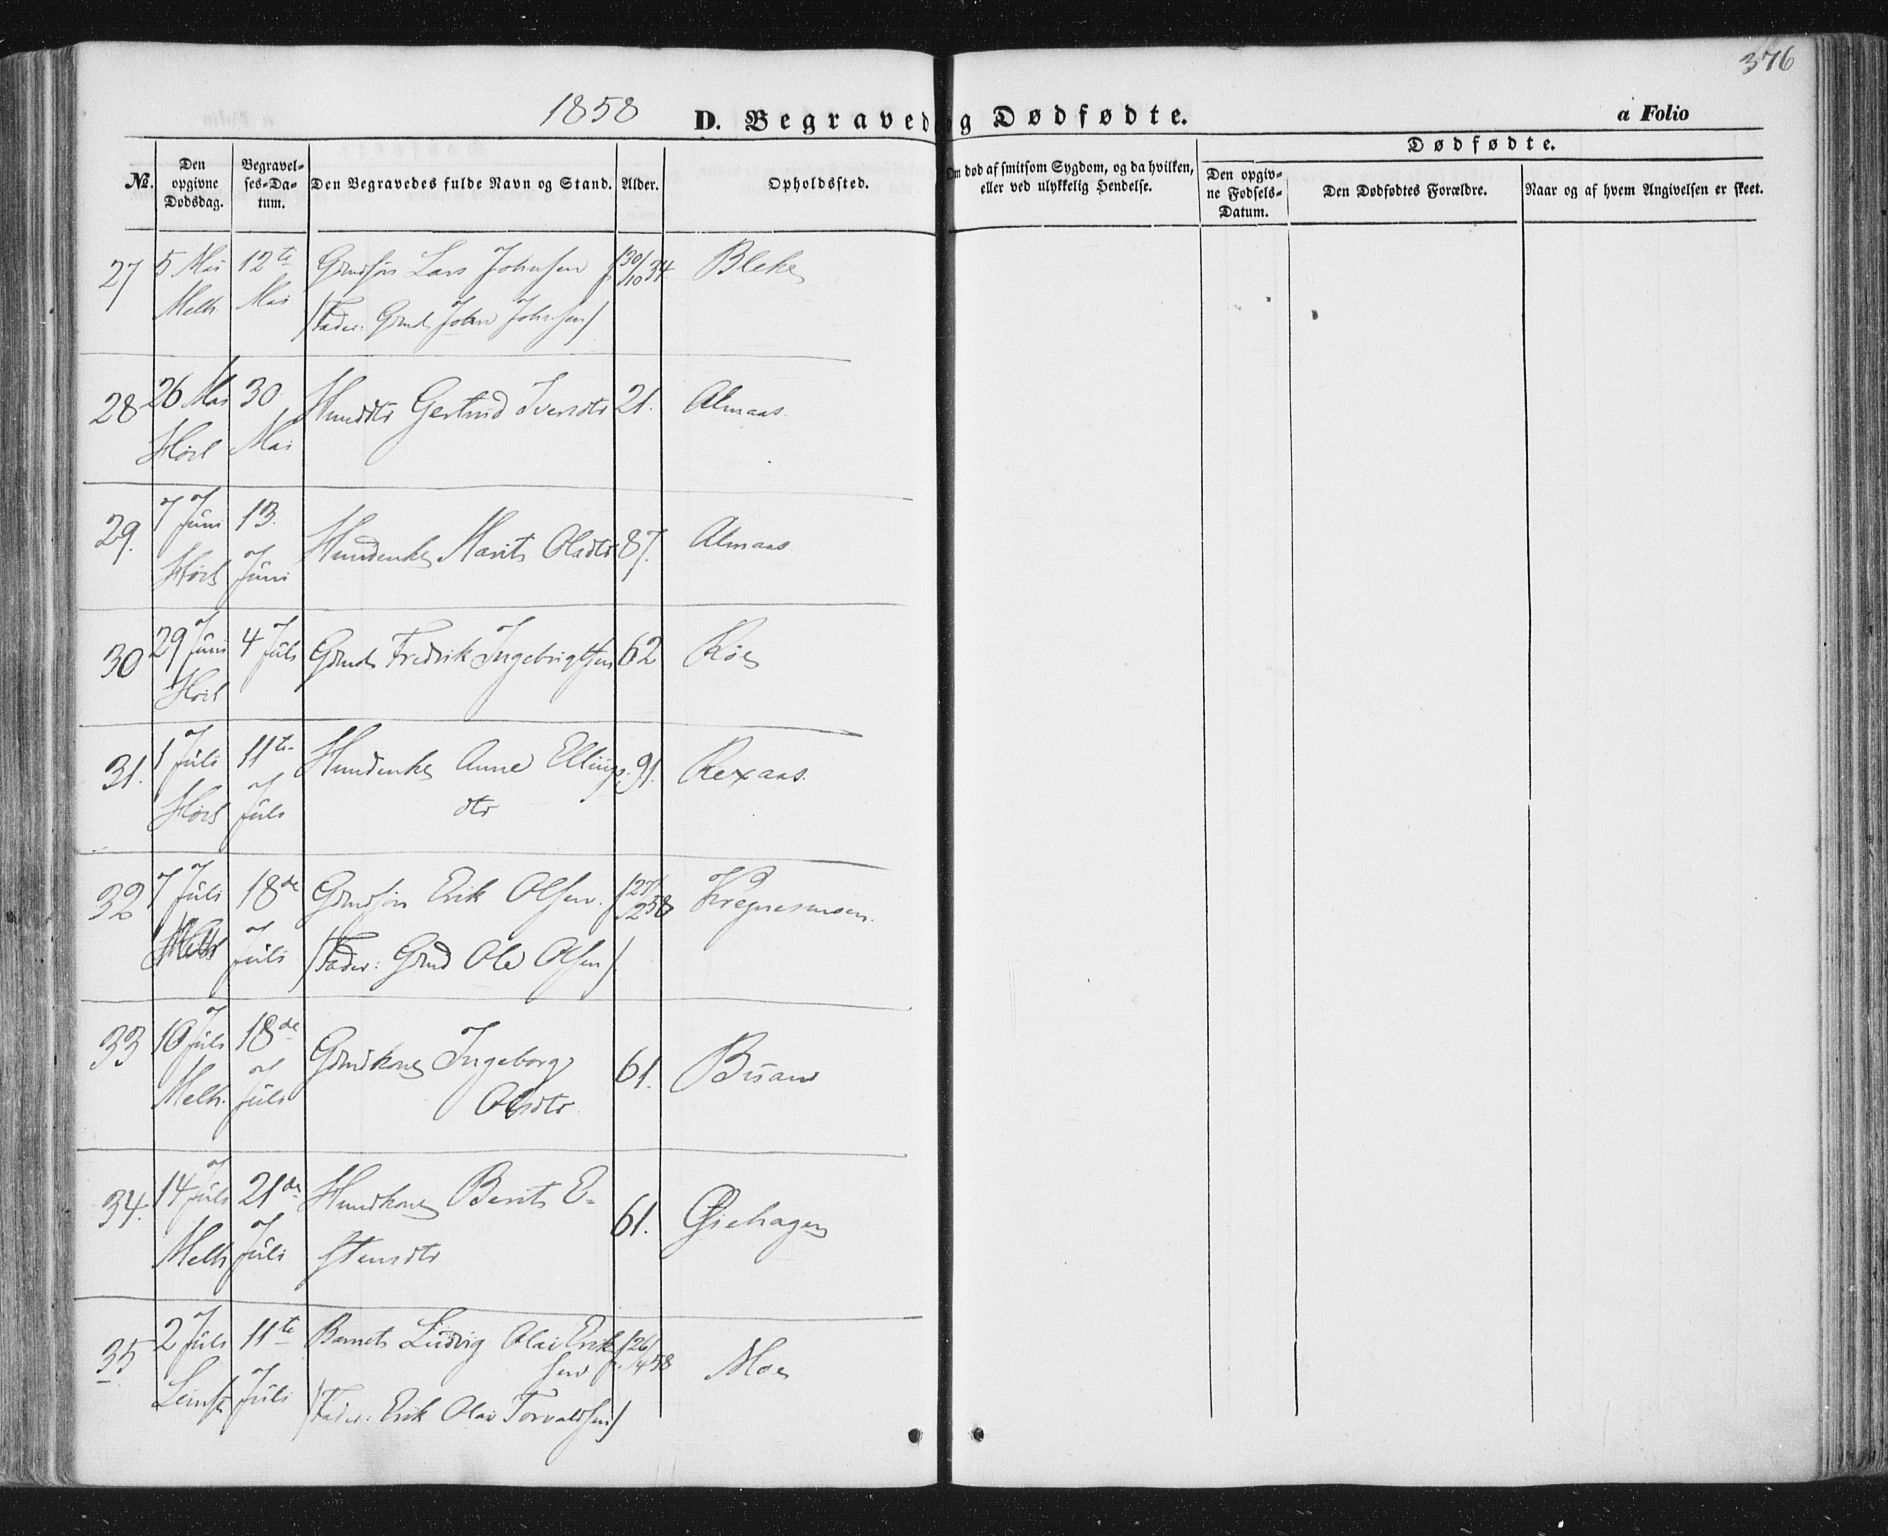 376
1858 D. Begravede og Dødfødte. a Folio
Dødfødte.
№. Den opgivne Dødsdag. Begravelses-Datum. Den Begravedes fulde Navn og Stand. Alder. Opholdssted. Om død af smitsom Sygdom, og da hvilken, eller ved ulykkelig Hendelse. Den opgivne Fødsels-Datum. Den Dødfødtes Forældre. Naar og af hvem Angivelsen er skeet.
27 5 Mai 12te Grmdsøn Lars Johnsen f. 30/10 34 Bleke
Melh. Mai (Fader: Grmd. John Johnsen)
28 26 Mai 30 Hmdtr Gertrud Iversdtr 21. Almaas
Høil Mai
29. 7 Juni 13. Hmdenke Marit Olsdtr 87. Almaas
Høil Juni
30 29 Juni 4 Juli Grmd. Fredrik Ingebrigtsen 62 Røe
Høil
31. 1 Juli 11te Hmdenke Anne Ellings- 91. Rexaas
Høil Juli dtr
32 7 Juli 18de Grmdsøn Erik Olsen f. 27/2 58 Kregnesmoen
Melh Juli (Fader: Grmd Ole Olsen)
33 10 Juli 18de Grmdkone Ingeborg 61. Buan
Melh. Juli Olsdtr
34. 14 Juli 21de Hmdkone Berit E- 61. Gjehagen
Melh Juli stensdtr
35 2 Juli 11te Barnet Ludvig Olai Erik- f. 26/4 58 Moe
sen
Leinst. Juli (Fader: Erik Olai Torvaldsen)